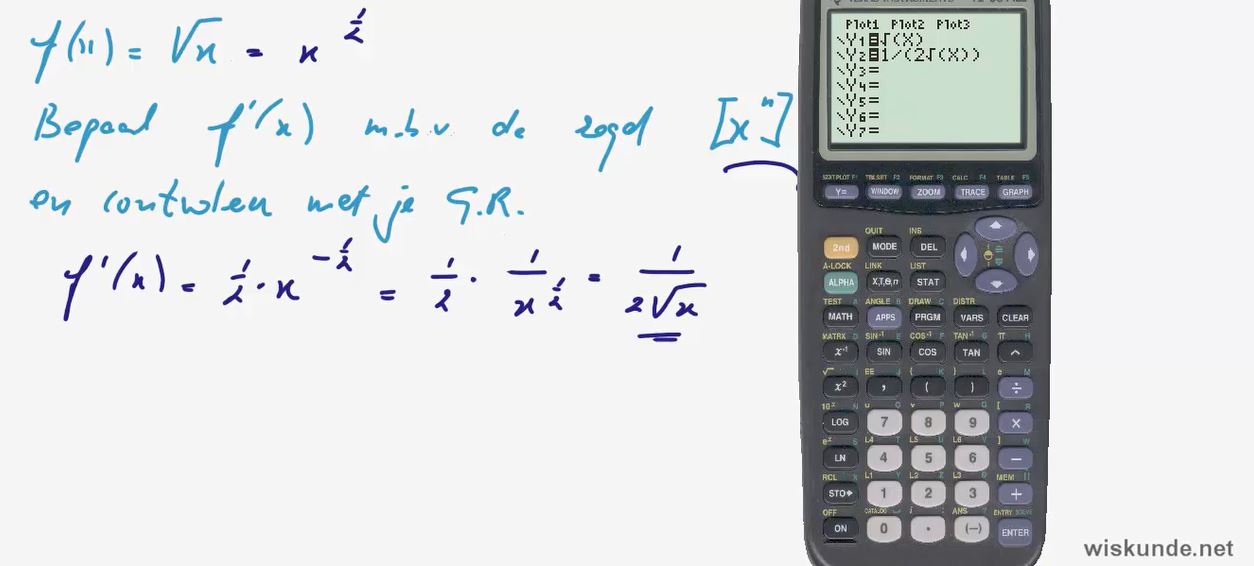 f(x) = √x = x^½
Bepaal f'(x) m.b.v. de regel [xⁿ]
en controleer met je G.R.
f'(x) = ½ · x^-½ = ½ · 1/x^½ = 1/(2√x)
Plot1 Plot2 Plot3
\Y1=√(X)
\Y2=1/(2√(X))
\Y3=
\Y4=
\Y5=
\Y6=
\Y7=
STAT PLOT F1 TBLSET F2 FORMAT F3 CALC F4 TABLE F5
Y= WINDOW ZOOM TRACE GRAPH
QUIT INS
2nd MODE DEL
A-LOCK LINK LIST
ALPHA X,T,θ,n STAT
TEST A ANGLE B DRAW C DISTR
MATH APPS PRGM VARS CLEAR
MATRX D SIN⁻¹ E COS⁻¹ F TAN⁻¹ G π H
x⁻¹ SIN COS TAN ^
√ I EE J { K } L e M
x² , ( ) ÷
10ˣ N u O v P w Q [ R
LOG 7 8 9 ×
eˣ S L4 T L5 U L6 V ] W
LN 4 5 6 −
RCL X L1 Y L2 Z L3 θ MEM "
STO▸ 1 2 3 +
OFF CATALOG i : ANS ? ENTRY SOLVE
ON 0 . (−) ENTER
wiskunde.net